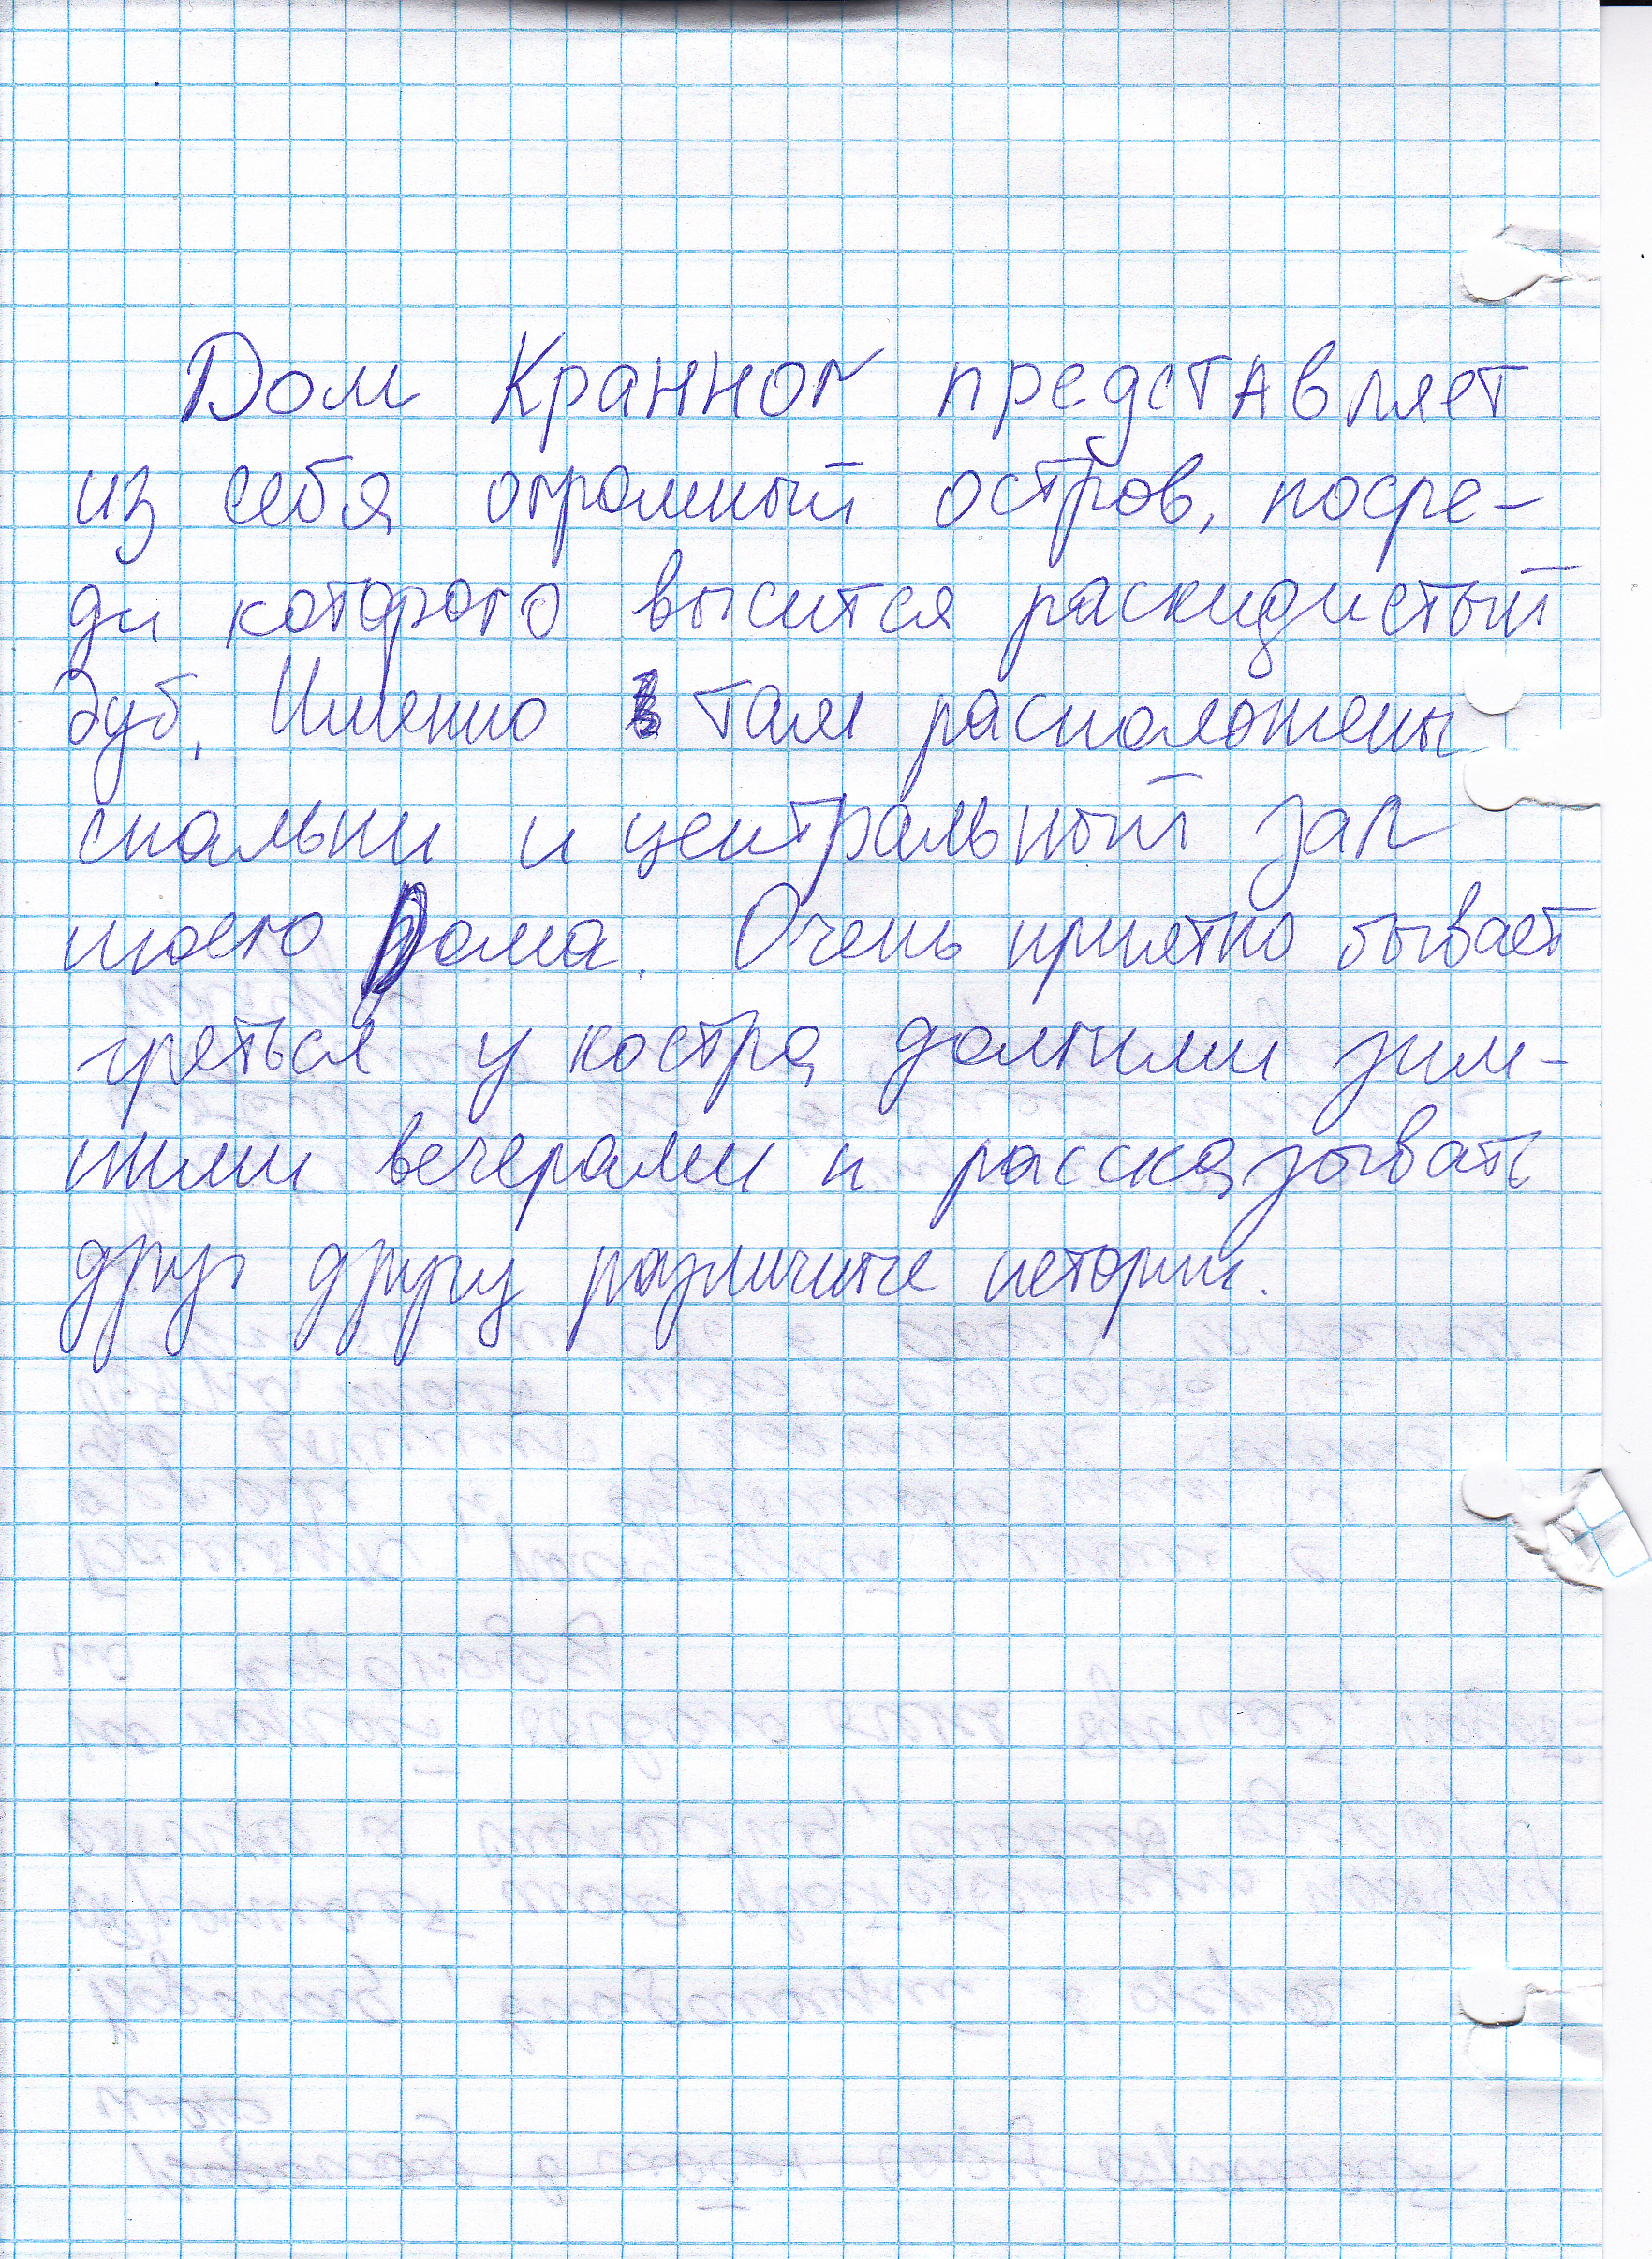 Дом Кранног представляет
из себя огромный остров, посре-
ди которого высится раскидистый
дуб. Именно там расположены
спальни и центральный зал
моего Дома. Очень приятно бывает
греться у костра долгими зим-
ними вечерами и рассказывать
друг другу различные истории.